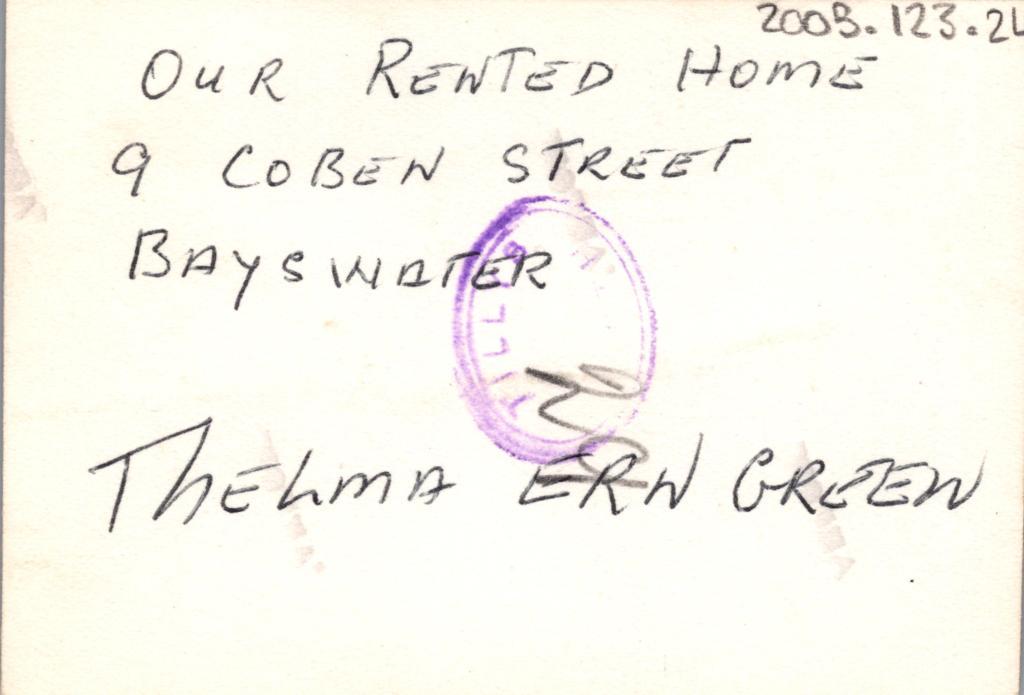 2003.123.2
OUR RENTED HOME
9 COBEN STREET
BAYSWATER
THELMA ERN GREEN